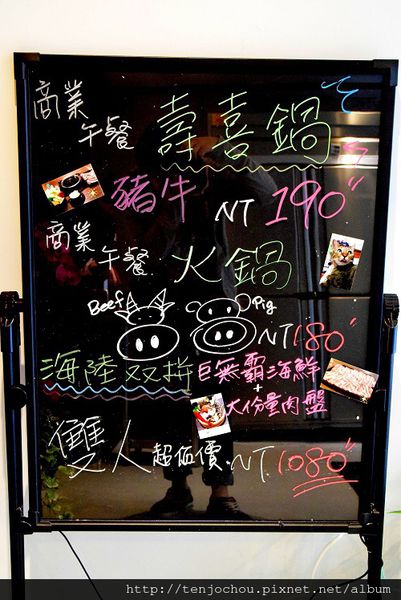 商業
午餐 壽喜鍋
豬牛 NT 190
商業
午餐 火鍋
Beef Pig
NT 180
海陸双拚 巨無霸海鮮
+
大份量肉盤
雙人 超値價 NT. 1080
http://tenjochou.pixnet.net/album